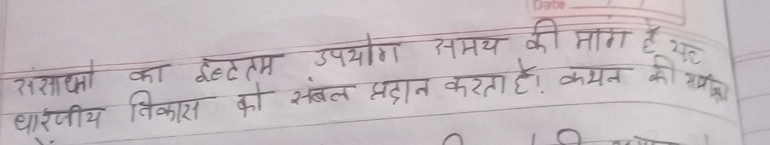 Date
संसाधनों का इष्टतम उपयोग समय की मांग है यह
धारणीय विकास को संबल प्रदान करता है। कथन की समीक्षा